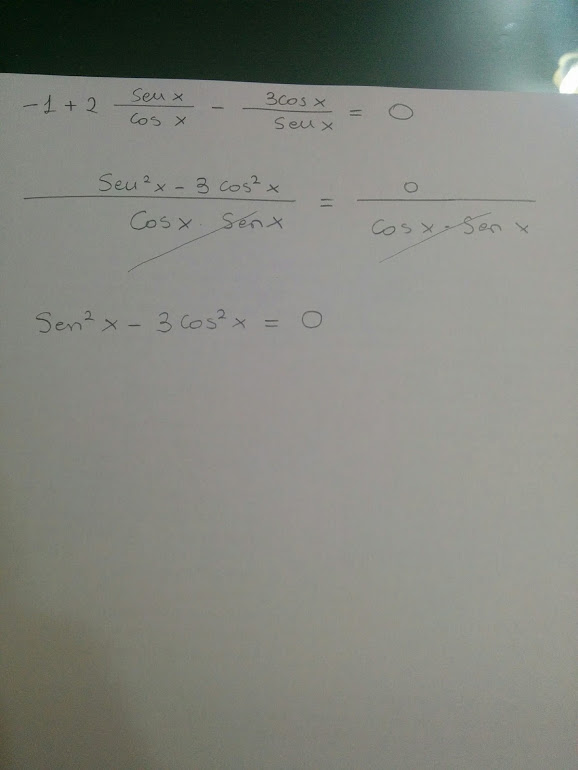 -1 + 2 sen x / cos x - 3cos x / sen x = 0
Sen²x - 3 cos²x / Cos x · Sen x = 0 / cos x · Sen x
Sen²x - 3 cos²x = 0